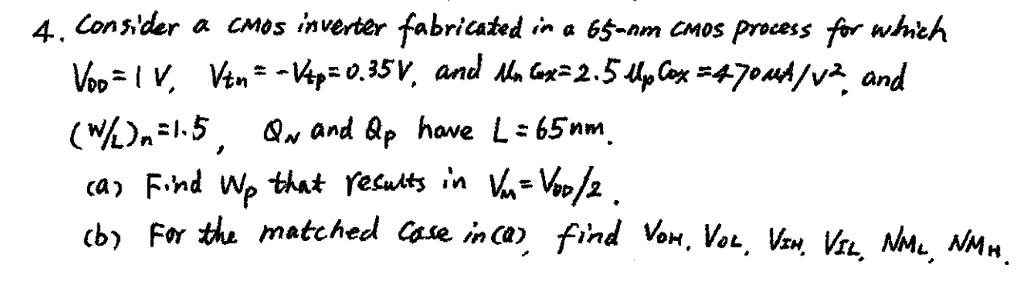 4. Consider a CMOS inverter fabricated in a 65-nm CMOS process for which
VDD = 1 V, Vtn = -Vtp = 0.35 V, and μn Cox = 2.5 μp Cox = 470 μA/V², and
(W/L)n = 1.5, QN and QP have L = 65 nm.
(a) Find Wp that results in VM = VDD/2.
(b) For the matched case in (a), find VOH, VOL, VIH, VIL, NML, NMH.